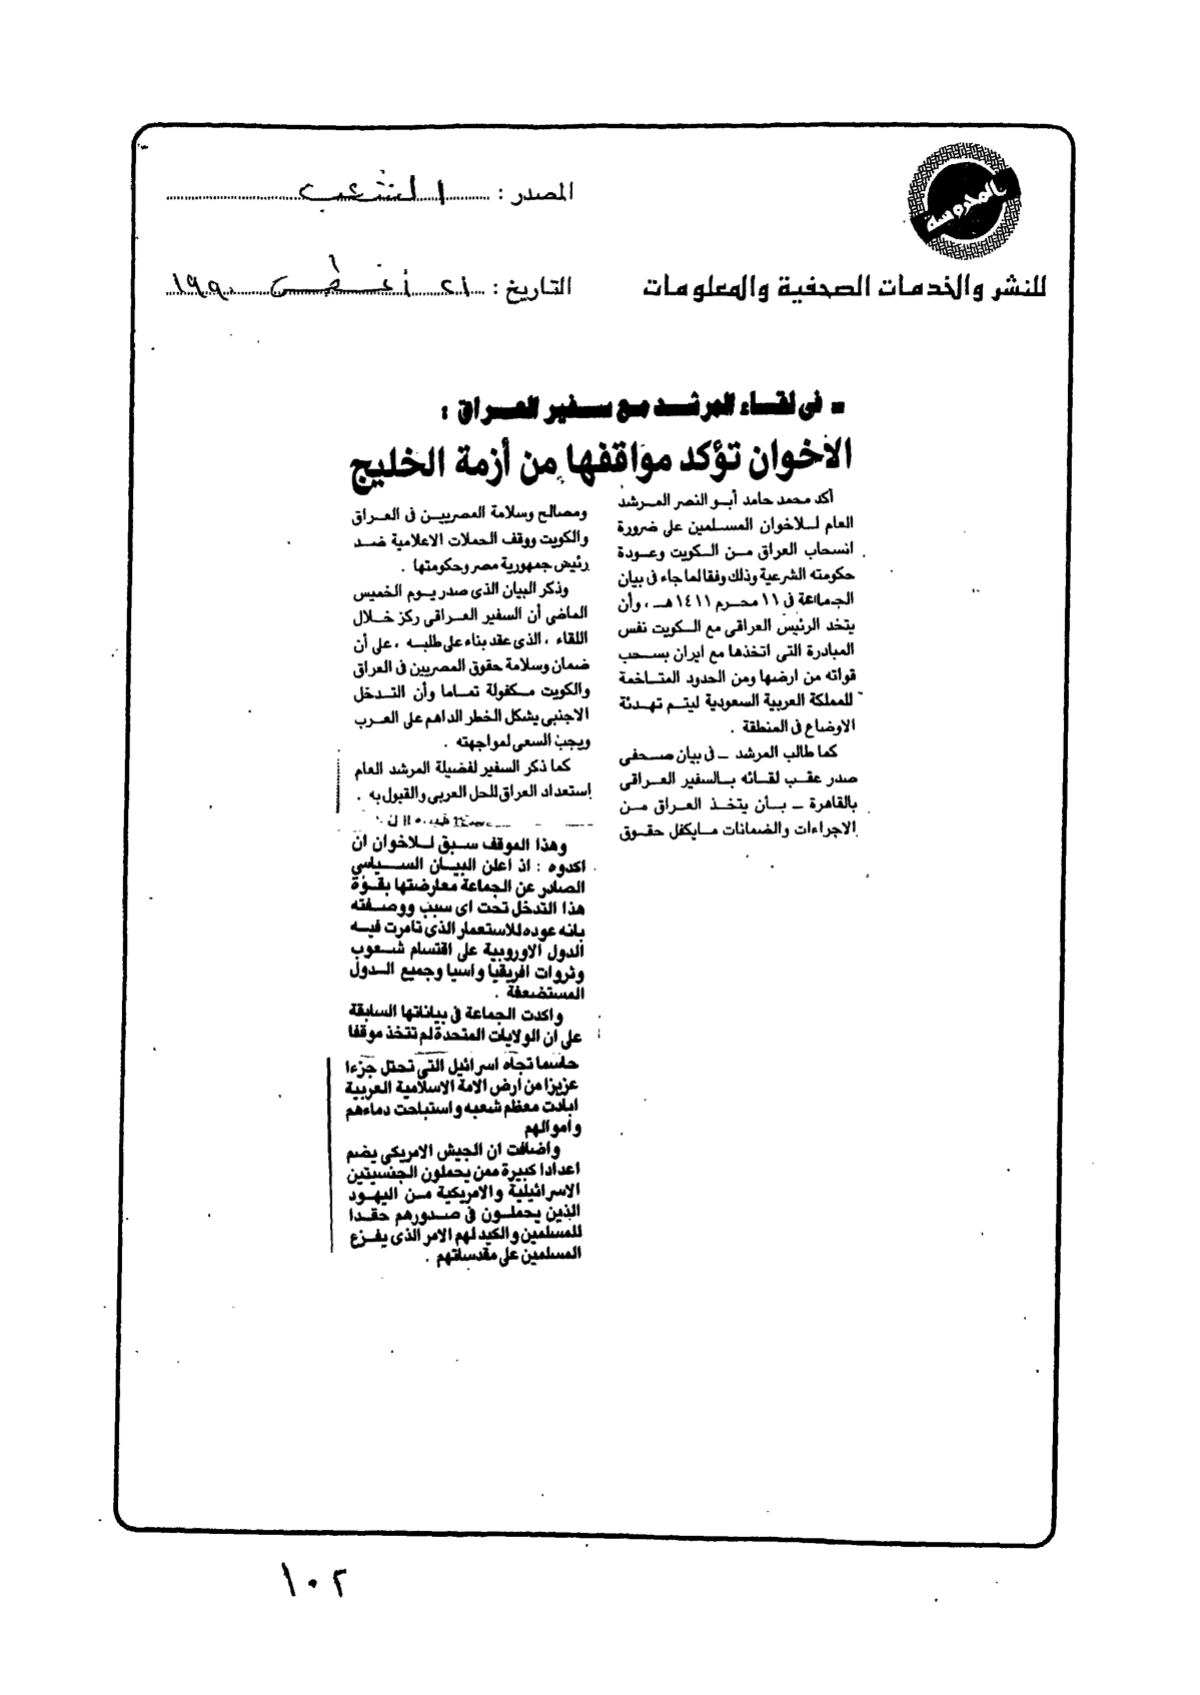 بالمحروسة
للنشر والخدمات الصحفية والمعلومات
المصدر : الشعب
التاريخ : ٢١ أغسطس ١٩٩٠
ـ فى لقاء المرشد مع سفير العراق :
الأخوان تؤكد مواقفها من أزمة الخليج
أكد محمد حامد أبو النصر المرشد
العام للاخوان المسلمين على ضرورة
انسحاب العراق من الكويت وعودة
حكومته الشرعية وذلك وفقا لما جاء فى بيان
الجماعة فى ١١ محرم ١٤١١ هـ ، وأن
يتخد الرئيس العراقى مع الكويت نفس
المبادرة التى اتخذها مع ايران بسحب
قواته من ارضها ومن الحدود المتاخمة
للمملكة العربية السعودية ليتم تهدئة
الاوضاع فى المنطقة .
كما طالب المرشد ـ فى بيان صحفى
صدر عقب لقائه بالسفير العراقى
بالقاهرة ـ بأن يتخذ العراق من
الاجراءات والضمانات مايكفل حقوق
ومصالح وسلامة المصريين فى العراق
والكويت ووقف الحملات الاعلامية ضد
رئيس جمهورية مصر وحكومتها .
وذكر البيان الذى صدر يوم الخميس
الماضى أن السفير العراقى ركز خلال
اللقاء ، الذى عقد بناء على طلبه ، على أن
ضمان وسلامة حقوق المصريين فى العراق
والكويت مكفولة تماما وأن التدخل
الاجنبى يشكل الخطر الداهم على العرب
ويجب السعى لمواجهته .
كما ذكر السفير لفضيلة المرشد العام
إستعداد العراق للحل العربى والقبول به .
وهذا الموقف سبق للاخوان ان
اكدوه : اذ اعلن البيان السياسى
الصادر عن الجماعة معارضتها بقوة
هذا التدخل تحت اى سبب ووصفته
بانه عوده للاستعمار الذى تامرت فيه
الدول الاوروبية على اقتسام شعوب
وثروات افريقيا واسيا وجميع الدول
المستضعفة .
واكدت الجماعة فى بياناتها السابقة
على ان الولايات المتحدة لم تتخذ موقفا
حاسما تجاه اسرائيل التى تحتل جزءا
عزيزا من ارض الامة الاسلامية العربية
ابادت معظم شعبه واستباحت دماءهم
واموالهم
واضافت ان الجيش الامريكى يضم
اعدادا كبيرة ممن يحملون الجنسيتين
الاسرائيلية والامريكية من اليهود
الذين يحملون فى صدورهم حقدا
للمسلمين والكيد لهم الامر الذى يفزع
المسلمين على مقدساتهم .
١٠٢